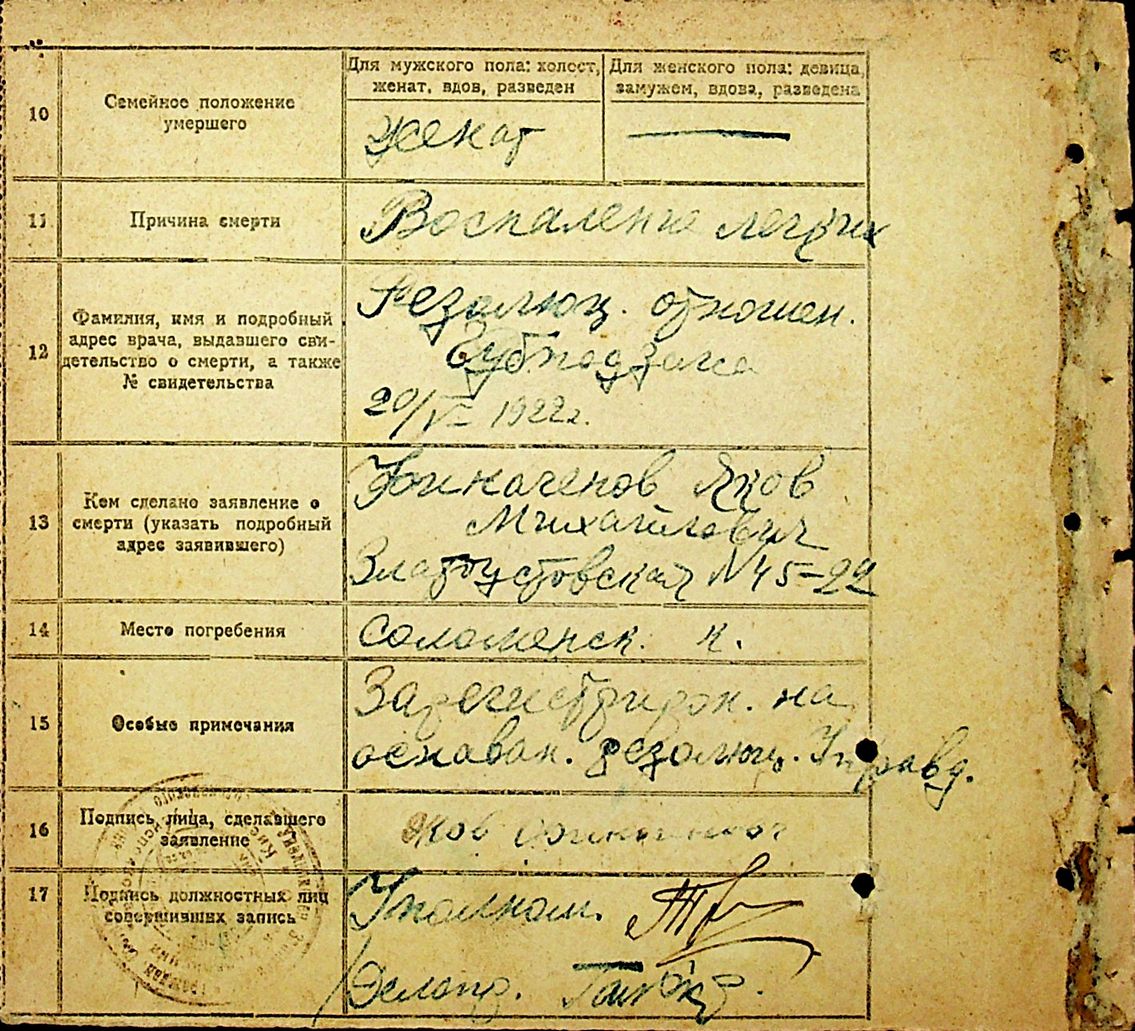 Для мужского пола: холост,
женат, вдов, разведен
Для женского пола: девица,
замужем, вдова, разведена
10
Семейное положение
умершего
женат
11
Причина смерти
Воспаление легких
12
Фамилия, имя и подробный
адрес врача, выдавшего сви-
детельство о смерти, а также
№ свидетельства
Резолюц. отношен.
20/V- 1922 г.
13
Кем сделано заявление о
смерти (указать подробный
адрес заявившего)
Яков
Михайлович
Златоустовская N 45-22
14
Место погребения
Соломенск. к.
15
Особые примечания
Зарегистриров. на
основан. резолюц. Управд.
16
Подпись лица, сделавшего
заявление
Яков
17
Подпись должностных лиц
совершивших запись
Уполном.
Делопр.